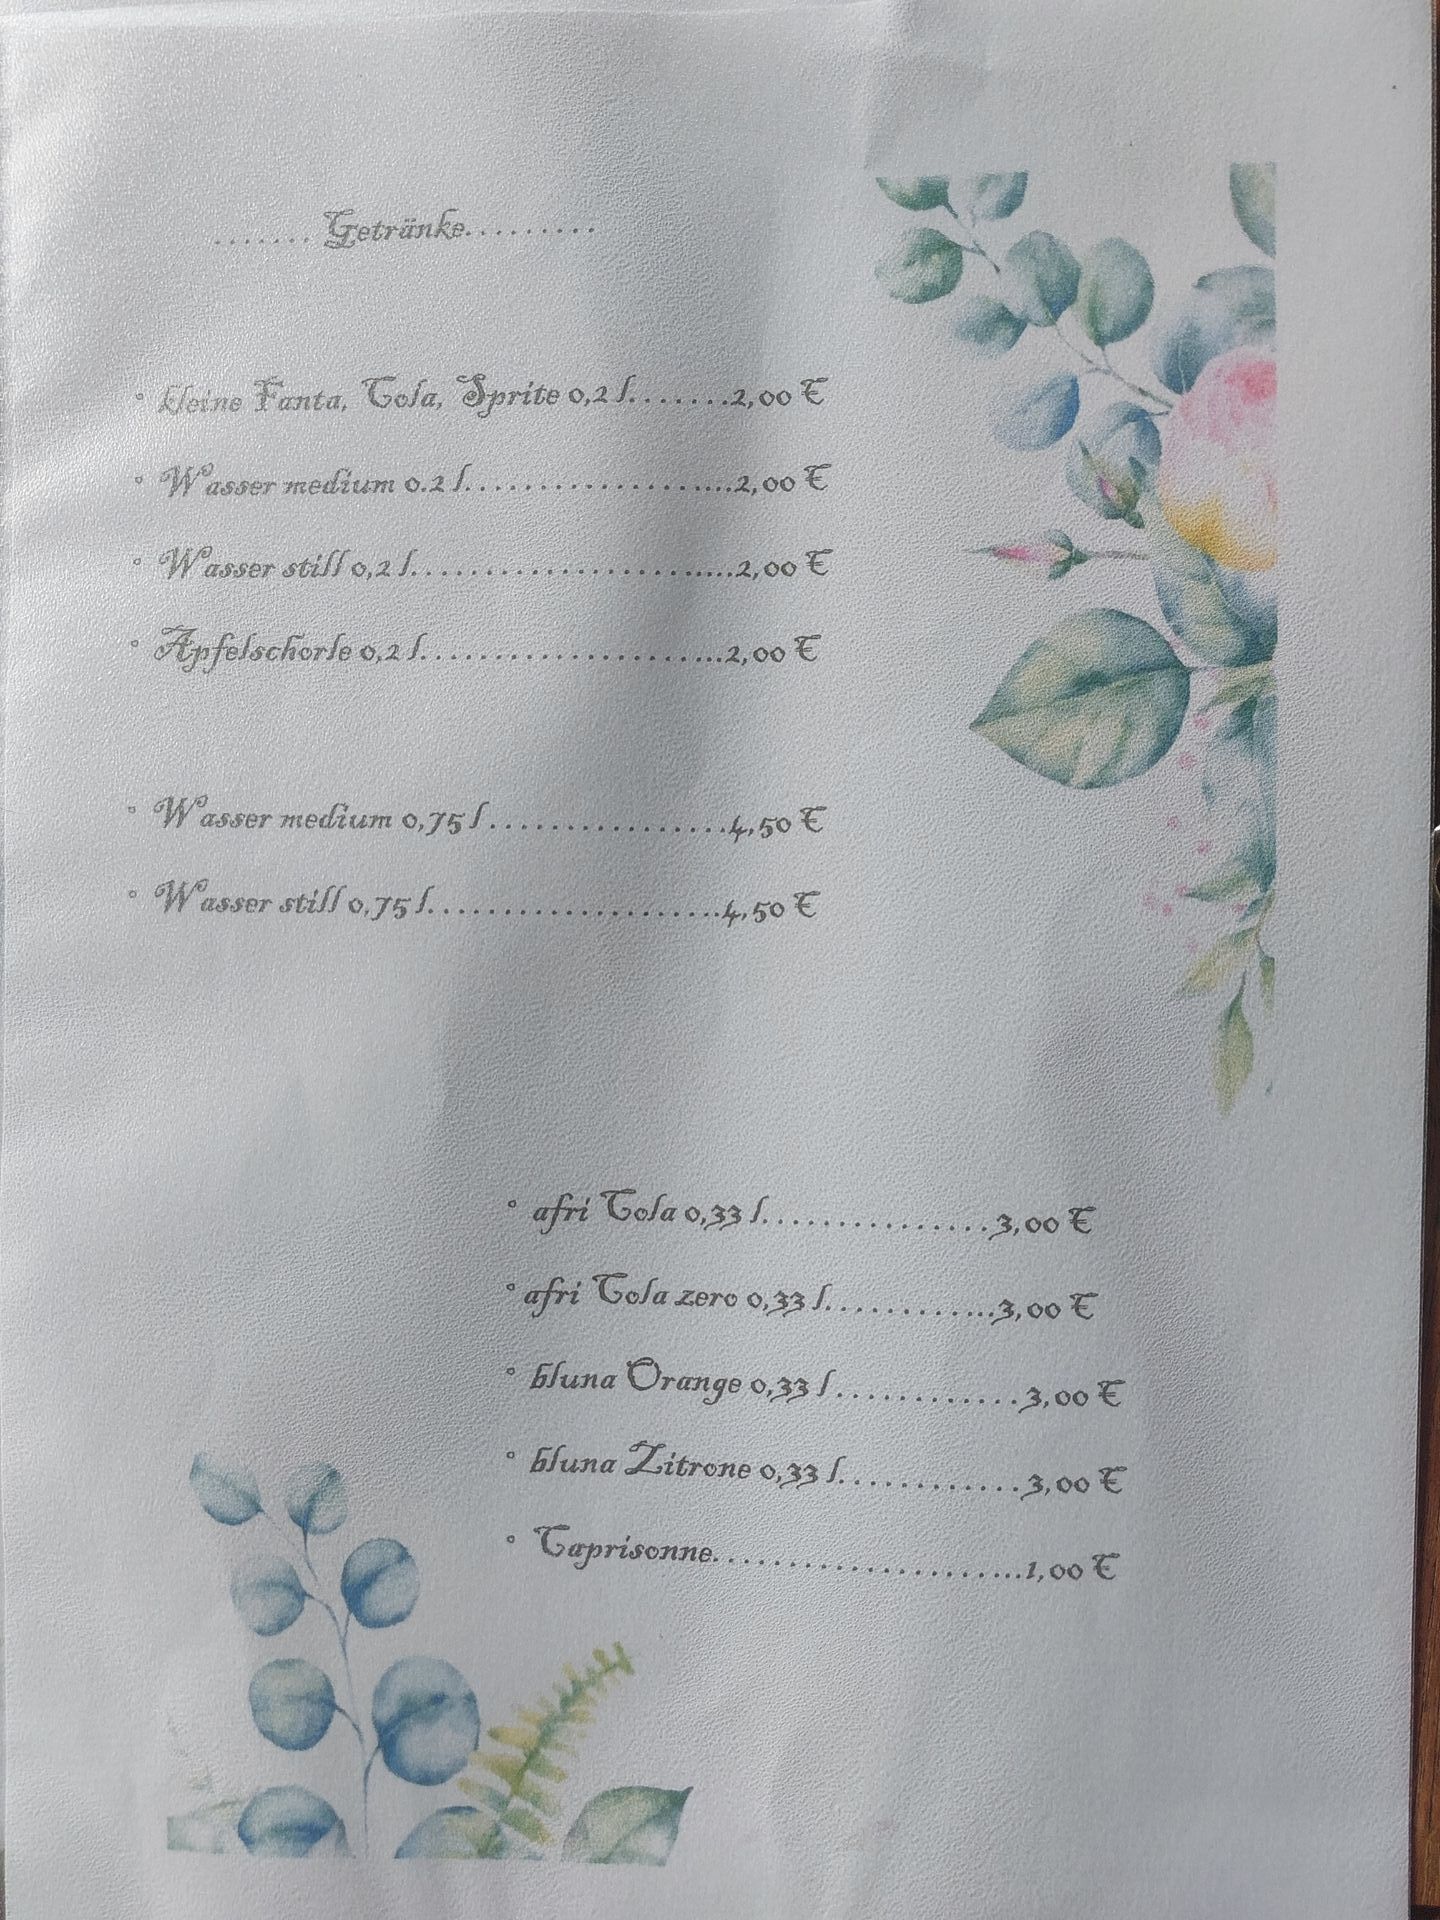 .......Getränke.........
° kleine Fanta, Cola, Sprite 0,2 l........2,00 €
° Wasser medium 0.2 l.........................2,00 €
° Wasser still 0,2 l..............................2,00 €
° Apfelschorle 0,2 l............................2,00 €
° Wasser medium 0,75 l.................4,50 €
° Wasser still 0,75 l.....................4,50 €
° afri Cola 0,33 l................3,00 €
° afri Cola zero 0,33 l.............3,00 €
° bluna Orange 0,33 l.............3,00 €
° bluna Zitrone 0,33 l.............3,00 €
° Caprisonne.......................1,00 €